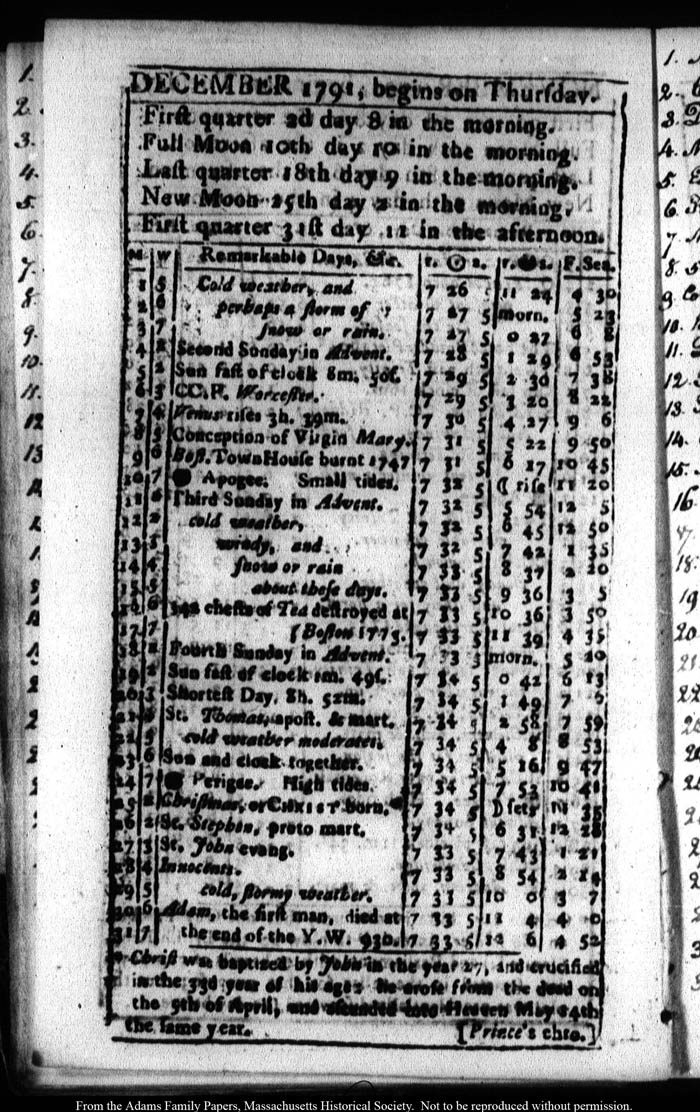 DECEMBER 1791, begins on Thurſday.
Firſt quarter 2d day 8 in the morning.
Full Moon 10th day 10 in the morning.
Laſt quarter 18th day 9 in the morning.
New Moon 25th day 2 in the morning.
Firſt quarter 31ſt day 12 in the afternoon.
M. W Remarkable Days, &c. r. ☉ s. r. s. F. Sea.
1 5 Cold weather, and 7 26 11 24 4 30
2 6 perhaps a ſtorm of 7 27 5 morn. 5 23
3 7 ſnow or rain. 7 27 5 0 27 6 8
4 Second Sunday in Advent. 7 28 5 1 29 6 53
5 2 Sun faſt of clock 8m. 50ſ. 7 29 5 2 30 7 38
6 3 CC.P. Worceſter. 7 29 5 3 20 8 22
7 4 Venus riſes 3h. 39m. 7 30 5 4 27 9 6
8 5 Conception of Virgin Mary. 7 31 5 5 22 9 50
9 6 Boſ. Town Houſe burnt 1747 7 31 5 6 17 10 45
10 7 Apogee. Small tides. 7 32 5 ☾ riſe 11 20
11 Third Sunday in Advent. 7 32 5 5 54 12 5
12 2 cold weather, 7 32 5 6 45 12 50
13 3 windy, and 7 32 5 7 42 1 35
14 4 ſnow or rain 7 33 5 8 37 2 20
15 5 about theſe days. 7 33 5 9 36 3 5
16 6 342 cheſts of Tea deſtroyed at 7 33 5 10 36 3 50
17 7 [Boſton 1773. 7 33 5 11 39 4 35
18 Fourth Sunday in Advent. 7 33 5 morn. 5 20
19 2 Sun faſt of clock 1m. 49ſ. 7 34 5 0 42 6 13
20 3 Shorteſt Day, 8h. 52m. 7 34 5 1 49 7 6
21 4 St. Thomas, apoſt. & mart. 7 34 5 2 58 7 59
22 5 cold weather moderates. 7 34 5 4 8 8 53
23 6 Sun and clock together. 7 34 5 5 16 9 47
24 7 Perigee. High tides. 7 34 5 7 52 10 41
25 Chriſtmas, or CHRIST born. 7 34 5 ☽ ſets 11 35
26 2 St. Stephen, proto mart. 7 34 5 6 31 12 28
27 3 St. John evang. 7 33 5 7 43 1 21
28 4 Innocents. 7 33 5 8 54 2 14
29 5 cold, ſtormy weather. 7 33 5 10 0 3 7
30 6 Adam, the firſt man, died at 7 33 5 11 4 4 0
31 7 the end of the Y. W. 930. 7 33 5 12 6 4 52
Chriſt was baptized by John in the year 27, and crucified
in the 33d year of his age: He aroſe from the dead on
the 9th of April, and aſcended into Heaven May 14th
the ſame year. [Prince's chro.]
From the Adams Family Papers, Massachusetts Historical Society. Not to be reproduced without permission.